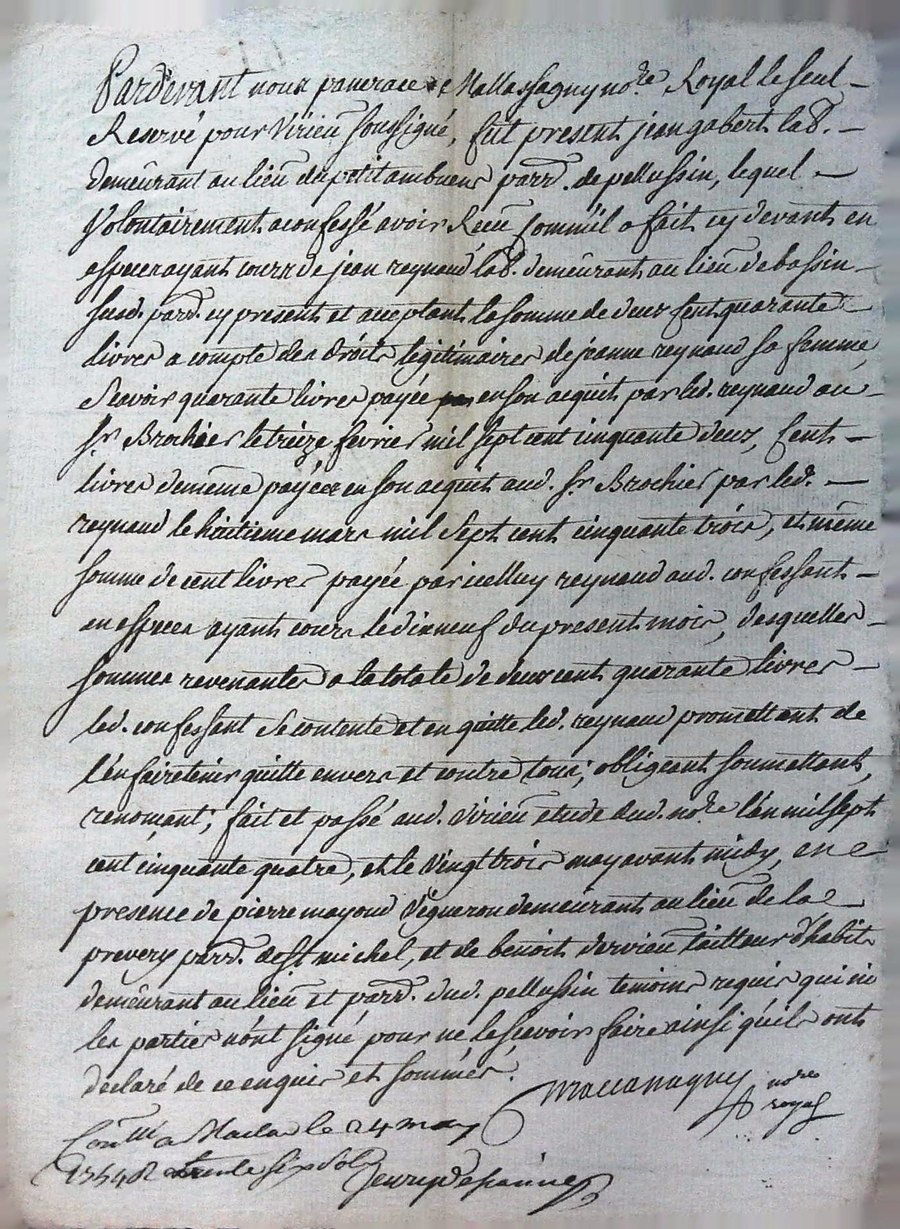 Pardevant nous pancrace Mallassagny no.re Royal le seul
Reservé pour Virieu soussigné, fut present jean gabert lab.
demeurant au lieu du petit ambuens parr. de pellussin, lequel
Volontairement a confessé avoir Receu comm'il a fait cy devant en
especes ayant cours de jean reynaud lab. demeurant au lieu de bassin
susd. parr. cy present et acceptant la somme de deux cent quarante
livres a compte des droits legitimaires de jeanne reynaud sa femme
Scavoir quarante livres payée en son acquit par led. reynaud au
Sr. Brochier le treize fevrier mil sept cent cinquante deux, Cent
livres de même payées en son acquit aud. Sr. Brochier par led.
reynaud le huitieme mars mil sept cent cinquante trois, et même
somme de cent livres payée par icelluy reynaud aud. confessant
en especes ayant cours le dixneuf du present mois, desquelles
sommes revenantes a la totale de deux cent quarante livres
led. confessant se contente et en quitte led. reynaud promettant de
l'en faire tenir quitte envers et contre tous; obligeant soumettant
renoncant; fait et passé aud. Virieu etude dud. no.re l'an mil sept
cent cinquante quatre, et le Vingt trois may avant midy, en
presence de pierre mayoud Vigneron demeurant au lieu de la
prevery parr. de St. michel, et de benoit dervieu tailleur d'habit
demeurant au lieu et parr. dud. pellussin temoins requis qui ni
les parties n'ont signé pour ne le scavoir faire ainsi qu'ils ont
declaré de ce enquis et sommés.
Mallassagny no.re
royal
Con.lle a Maclas le 24 may
1754 R trente six sols